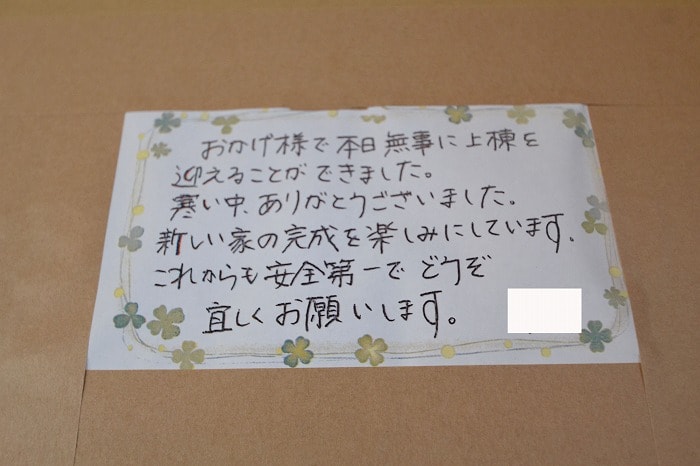 おかげ様で本日無事に上棟を
迎えることができました。
寒い中、ありがとうございました。
新しい家の完成を楽しみにしています。
これからも安全第一でどうぞ
宜しくお願いします。